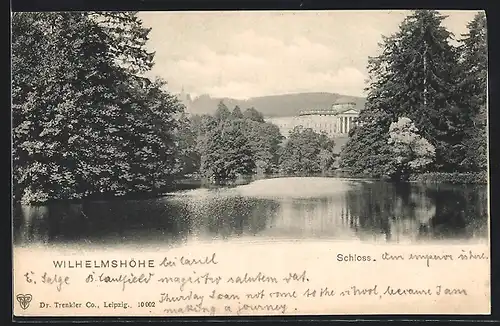 WILHELMSHÖHE bei Cassel
Schloss. Am emperor is here.
B. Caulfield magister salutem dat.
Thursday I can not come to the school, because I am
making a journey.
Dr. Trenkler Co., Leipzig. 10 002